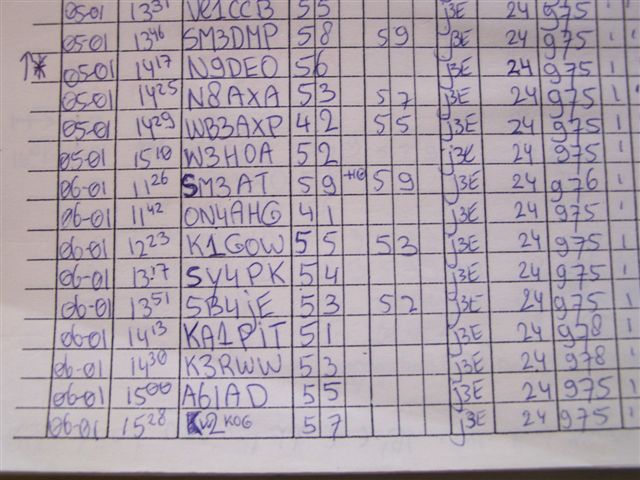 05-01 1331 VE1CCB 55 j3E 24 975 1
05-01 1346 SM3DMP 58 59 j3E 24 975 1 1
↑* 05-01 1417 N9DEO 56 j3E 24 975 1 1
05-01 1425 N8AXA 53 57 j3E 24 975 1 1
05-01 1429 WB3AXP 42 55 j3E 24 975 1
05-01 1510 W3HOA 52 j3E 24 975 1
06-01 1126 SM3AT 59 +10 59 j3E 24 976 1
06-01 1142 ON4AHG 41 j3E 24 975 1
06-01 1223 K1GOW 55 53 j3E 24 975 1
06-01 1317 SY4PK 54 j3E 24 975 1
06-01 1351 5B4jE 53 52 j3E 24 975 1
06-01 1413 KA1PiT 51 j3E 24 978 1
06-01 1430 K3RWW 53 j3E 24 978 1
06-01 1500 A61AD 55 j3E 24 975 1
06-01 1528 57 j3E 24 975 1